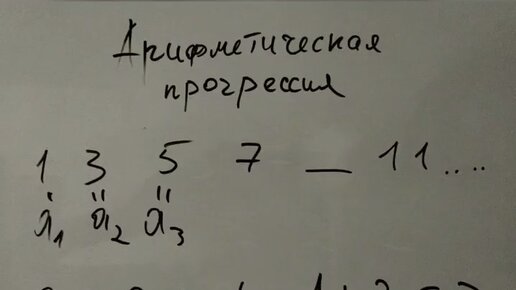 Арифметическая
прогрессия
1 3 5 7 _ 11....
" " "
a₁ a₂ a₃